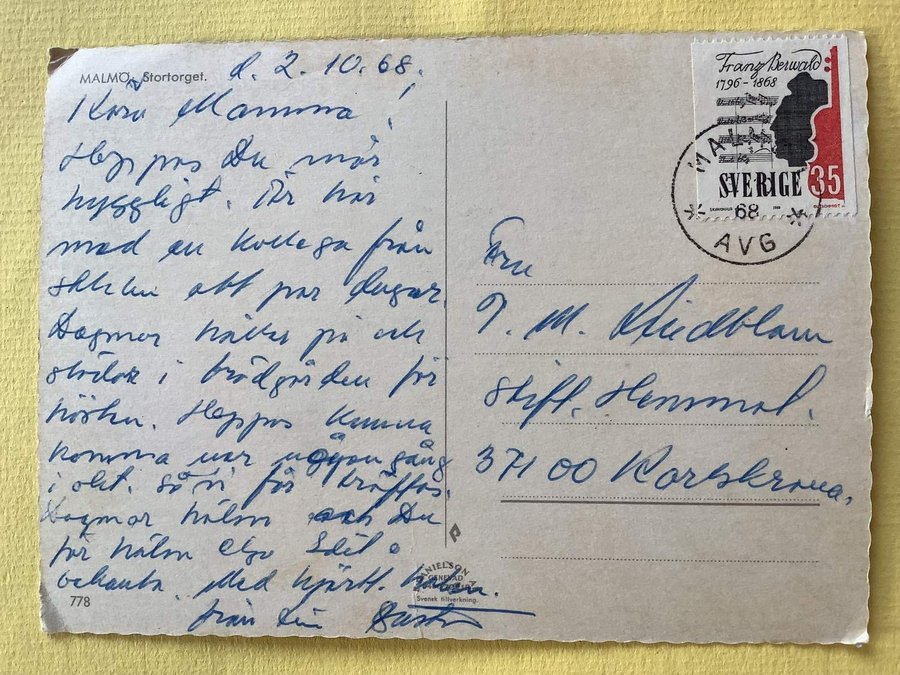 MALMÖ, Stortorget.
d. 2. 10. 68.
Kära Mamma!
Hoppas Du mår
hyggligt. Är här
med en kollega från
ett par dagar.
Dagmar håller på och
städar i trädgården för
hösten. Hoppas kunna
komma någon gång
i okt. så vi får träffas.
Dagmar hälsn och Du
får hälsn
bekanta. Med hjärtl. hälsn.
från Din
778
DANIELSON
GRENEVAD
Svensk tillverkning.
Franz Berwald
1796-1868
SVERIGE 35
MALMÖ
68
AVG
Fru
T. M. Lindblom
Stift. Hemmet.
371 00 Karlskrona.